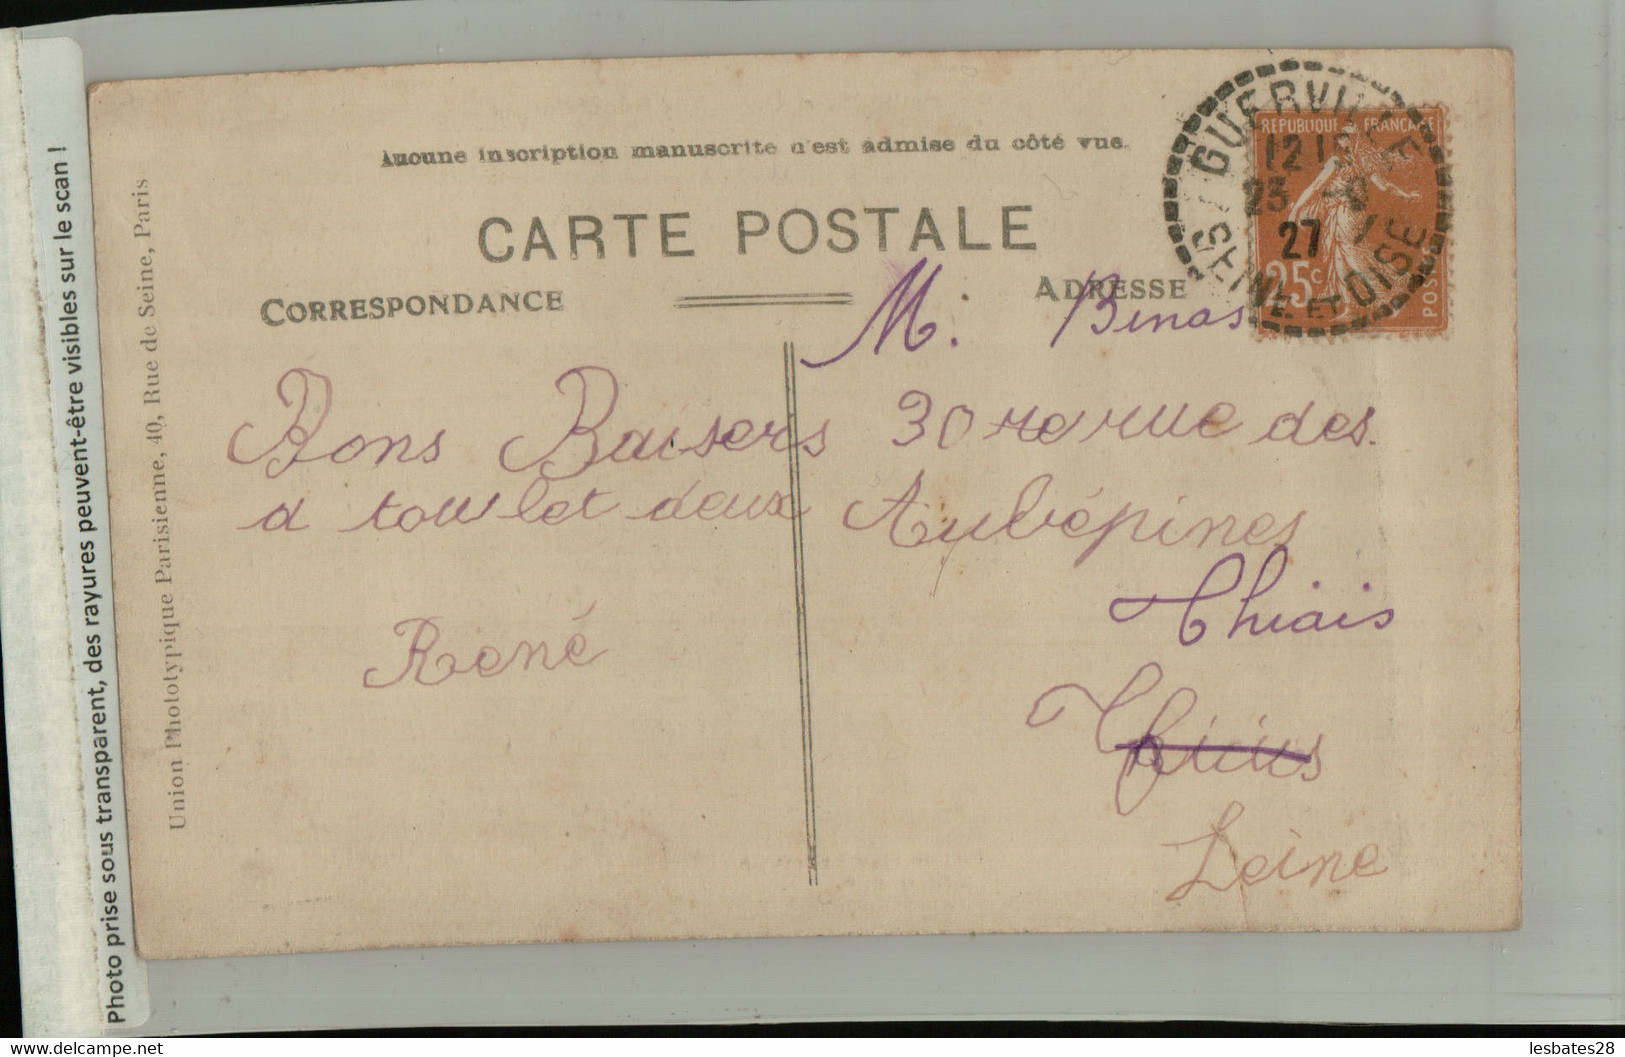 Aucune inscription manuscrite n'est admise du côté vue.
CARTE POSTALE
CORRESPONDANCE
ADRESSE
Bons Baisers
a tous let deux
René
M. Binas
30 rue des
Aubépines
Thiais
Seine
GUERVILLE
SEINE ET OISE
12
25
27
REPUBLIQUE FRANÇAISE
25c
POSTES
Union Phototypique Parisienne, 40, Rue de Seine, Paris
Photo prise sous transparent, des rayures peuvent-être visibles sur le scan !
www.delcampe.net
lesbates28